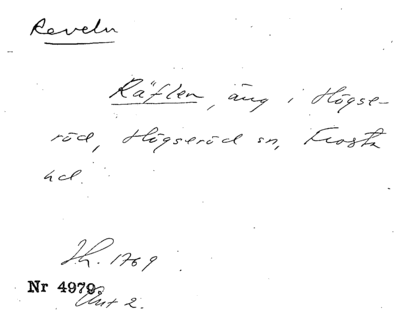 Reveln
Räflen, äng i Högse-
röd, Högseröd sn, Frosta
hd.
Jh. 1769.
Nr 4979.
Akt 2.